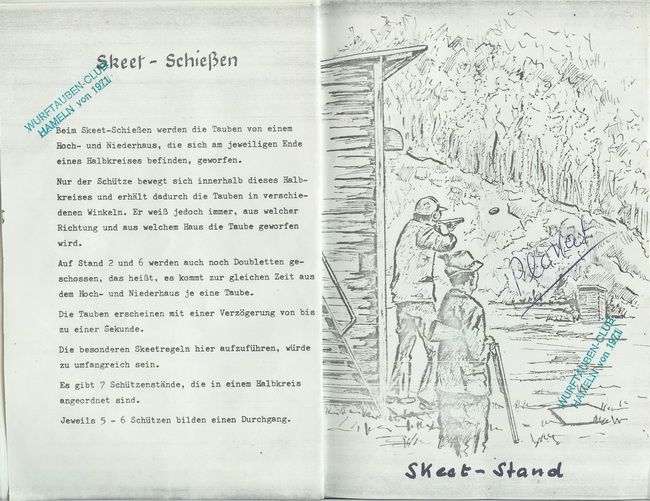 Skeet - Schießen
WURFTAUBEN-CLUB
HAMELN von 1971
Beim Skeet-Schießen werden die Tauben von einem
Hoch- und Niederhaus, die sich am jeweiligen Ende
eines Halbkreises befinden, geworfen.
Nur der Schütze bewegt sich innerhalb dieses Halb-
kreises und erhält dadurch die Tauben in verschie-
denen Winkeln. Er weiß jedoch immer, aus welcher
Richtung und aus welchem Haus die Taube geworfen
wird.
Auf Stand 2 und 6 werden auch noch Doubletten ge-
schossen, das heißt, es kommt zur gleichen Zeit aus
dem Hoch- und Niederhaus je eine Taube.
Die Tauben erscheinen mit einer Verzögerung von bis
zu einer Sekunde.
Die besonderen Skeetregeln hier aufzuführen, würde
zu umfangreich sein.
Es gibt 7 Schützenstände, die in einem Halbkreis
angeordnet sind.
Jeweils 5 - 6 Schützen bilden einen Durchgang.
WURFTAUBEN-CLUB
HAMELN von 1971
Skeet-Stand